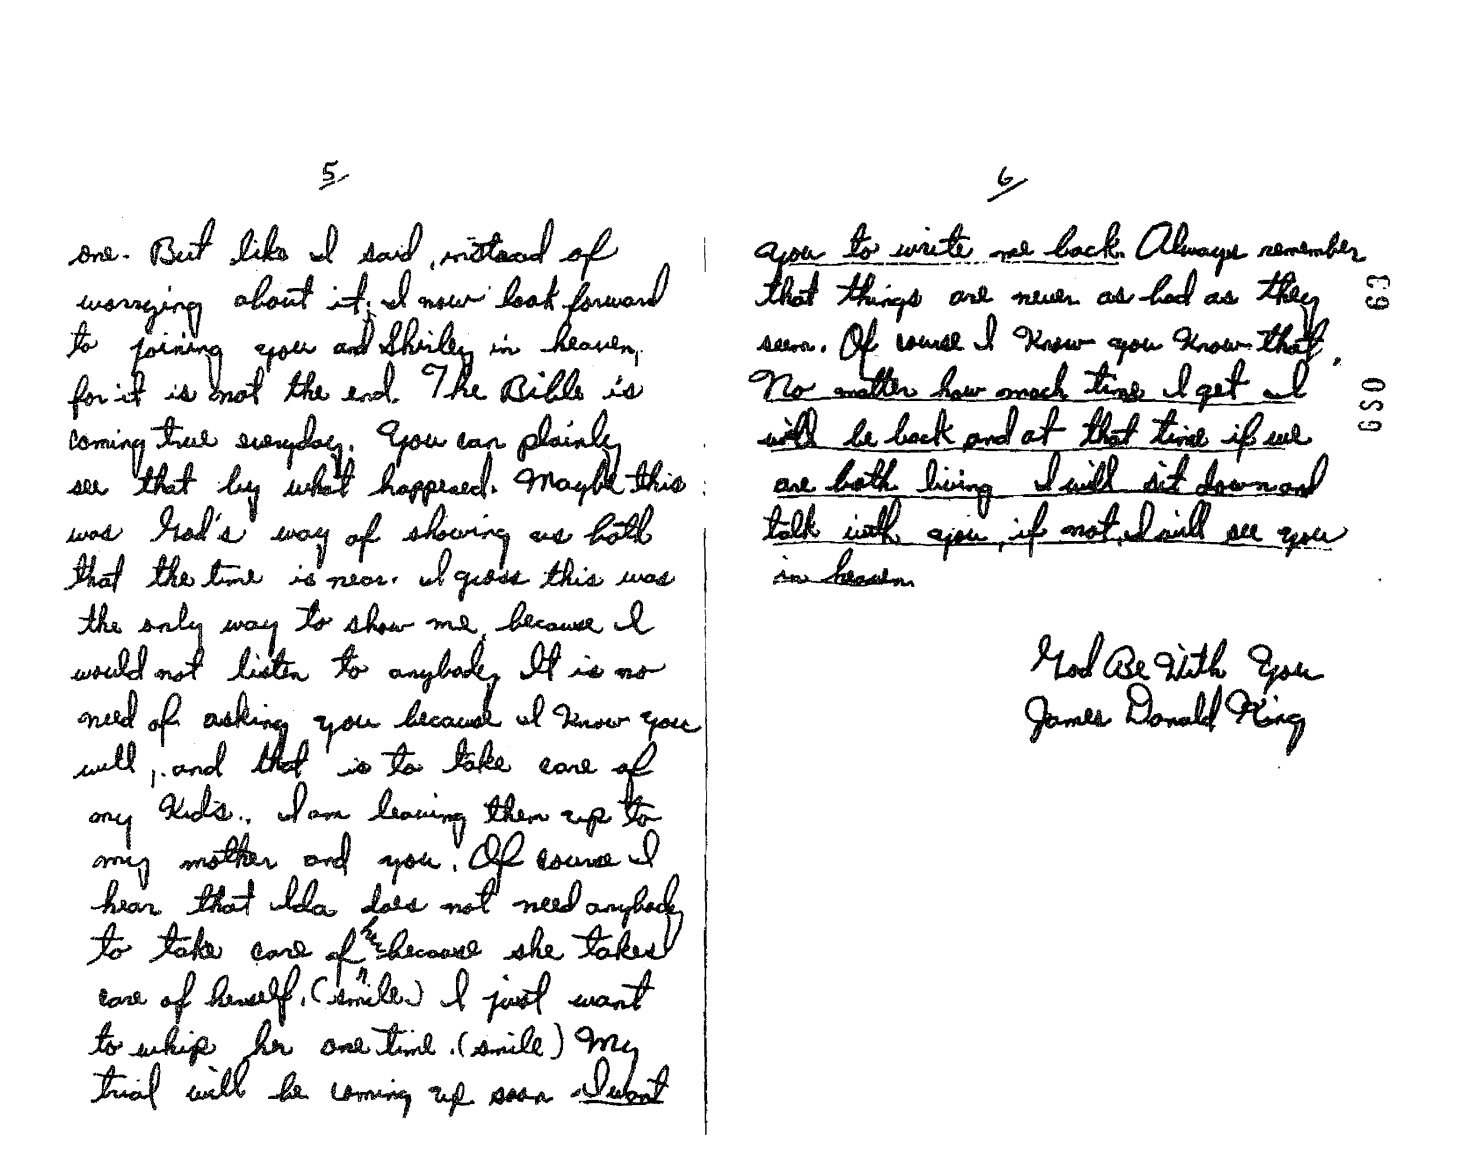 5
one. But like I said, instead of
worrying about it; I now look forward
to joining you and Shirley in heaven,
for it is not the end. The Bible is
coming true everyday. You can plainly
see that by what happened. Maybe this
was God's way of showing us both
that the time is near. I guess this was
the only way to show me, because I
would not listen to anybody. It is no
need of asking you because I know you
will, and that is to take care of
my Kid's., I am leaving them up to
my mother and you. Of course I
hear that Ida does not need anybody
to take care of her because she takes
care of herself. (smile) I just want
to whip her one time. (smile) My
trial will be coming up soon I want
6
you to write me back. Always remember
that things are never as bad as they
seem. Of course I Know you Know that.
No matter how much time I get I
will be back and at that time if we
are both living I will sit down and
talk with you, if not, I will see you
in heaven.
God Be With You
James Donald King
GSO 63